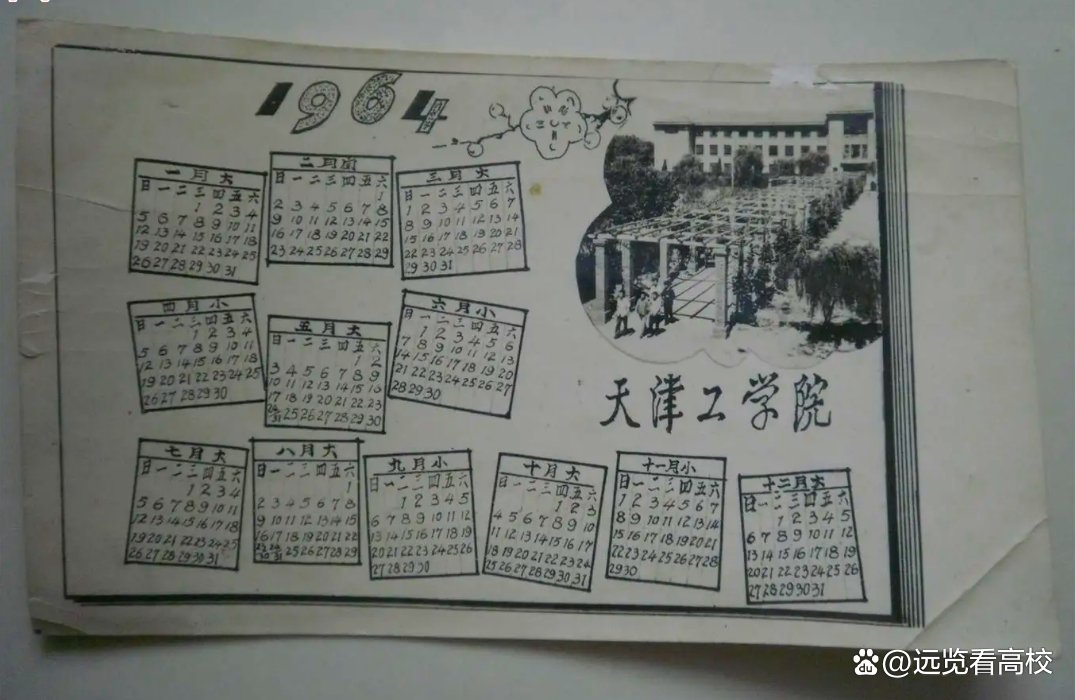 1964
一月大
日一二三四五六
1 2 3 4
5 6 7 8 9 10 11
12 13 14 15 16 17 18
19 20 21 22 23 24 25
26 27 28 29 30 31
二月闰
日一二三四五六
1
2 3 4 5 6 7 8
9 10 11 12 13 14 15
16 17 18 19 20 21 22
23 24 25 26 27 28 29
三月大
日一二三四五六
1 2 3 4 5 6 7
8 9 10 11 12 13 14
15 16 17 18 19 20 21
22 23 24 25 26 27 28
29 30 31
四月小
日一二三四五六
1 2 3 4
5 6 7 8 9 10 11
12 13 14 15 16 17 18
19 20 21 22 23 24 25
26 27 28 29 30
五月大
日一二三四五六
1 2
3 4 5 6 7 8 9
10 11 12 13 14 15 16
17 18 19 20 21 22 23
24/31 25 26 27 28 29 30
六月小
日一二三四五六
1 2 3 4 5 6
7 8 9 10 11 12 13
14 15 16 17 18 19 20
21 22 23 24 25 26 27
28 29 30
天津工学院
七月大
日一二三四五六
1 2 3 4
5 6 7 8 9 10 11
12 13 14 15 16 17 18
19 20 21 22 23 24 25
26 27 28 29 30 31
八月大
日一二三四五六
1
2 3 4 5 6 7 8
9 10 11 12 13 14 15
16 17 18 19 20 21 22
23/30 24/31 25 26 27 28 29
九月小
日一二三四五六
1 2 3 4 5
6 7 8 9 10 11 12
13 14 15 16 17 18 19
20 21 22 23 24 25 26
27 28 29 30
十月大
日一二三四五六
1 2 3
4 5 6 7 8 9 10
11 12 13 14 15 16 17
18 19 20 21 22 23 24
25 26 27 28 29 30 31
十一月小
日一二三四五六
1 2 3 4 5 6 7
8 9 10 11 12 13 14
15 16 17 18 19 20 21
22 23 24 25 26 27 28
29 30
十二月大
日一二三四五六
1 2 3 4 5
6 7 8 9 10 11 12
13 14 15 16 17 18 19
20 21 22 23 24 25 26
27 28 29 30 31
@远览看高校